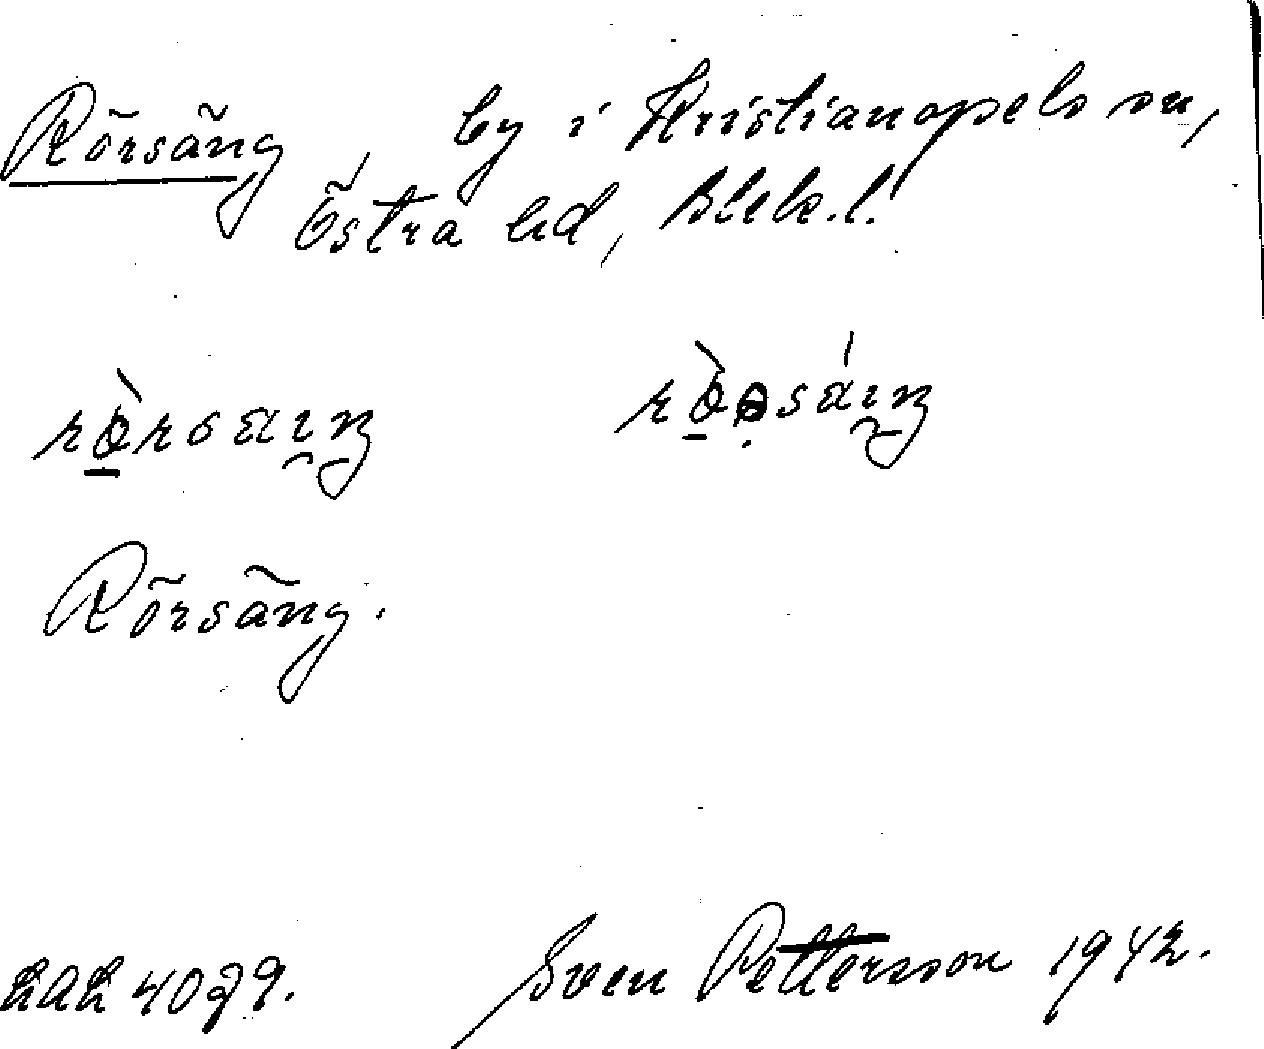 Rörsäng, by i Kristianopels sn,
Östra hd, Blek. l.
Rörsäng.
LAL 4029. Sven Petterson 1942.